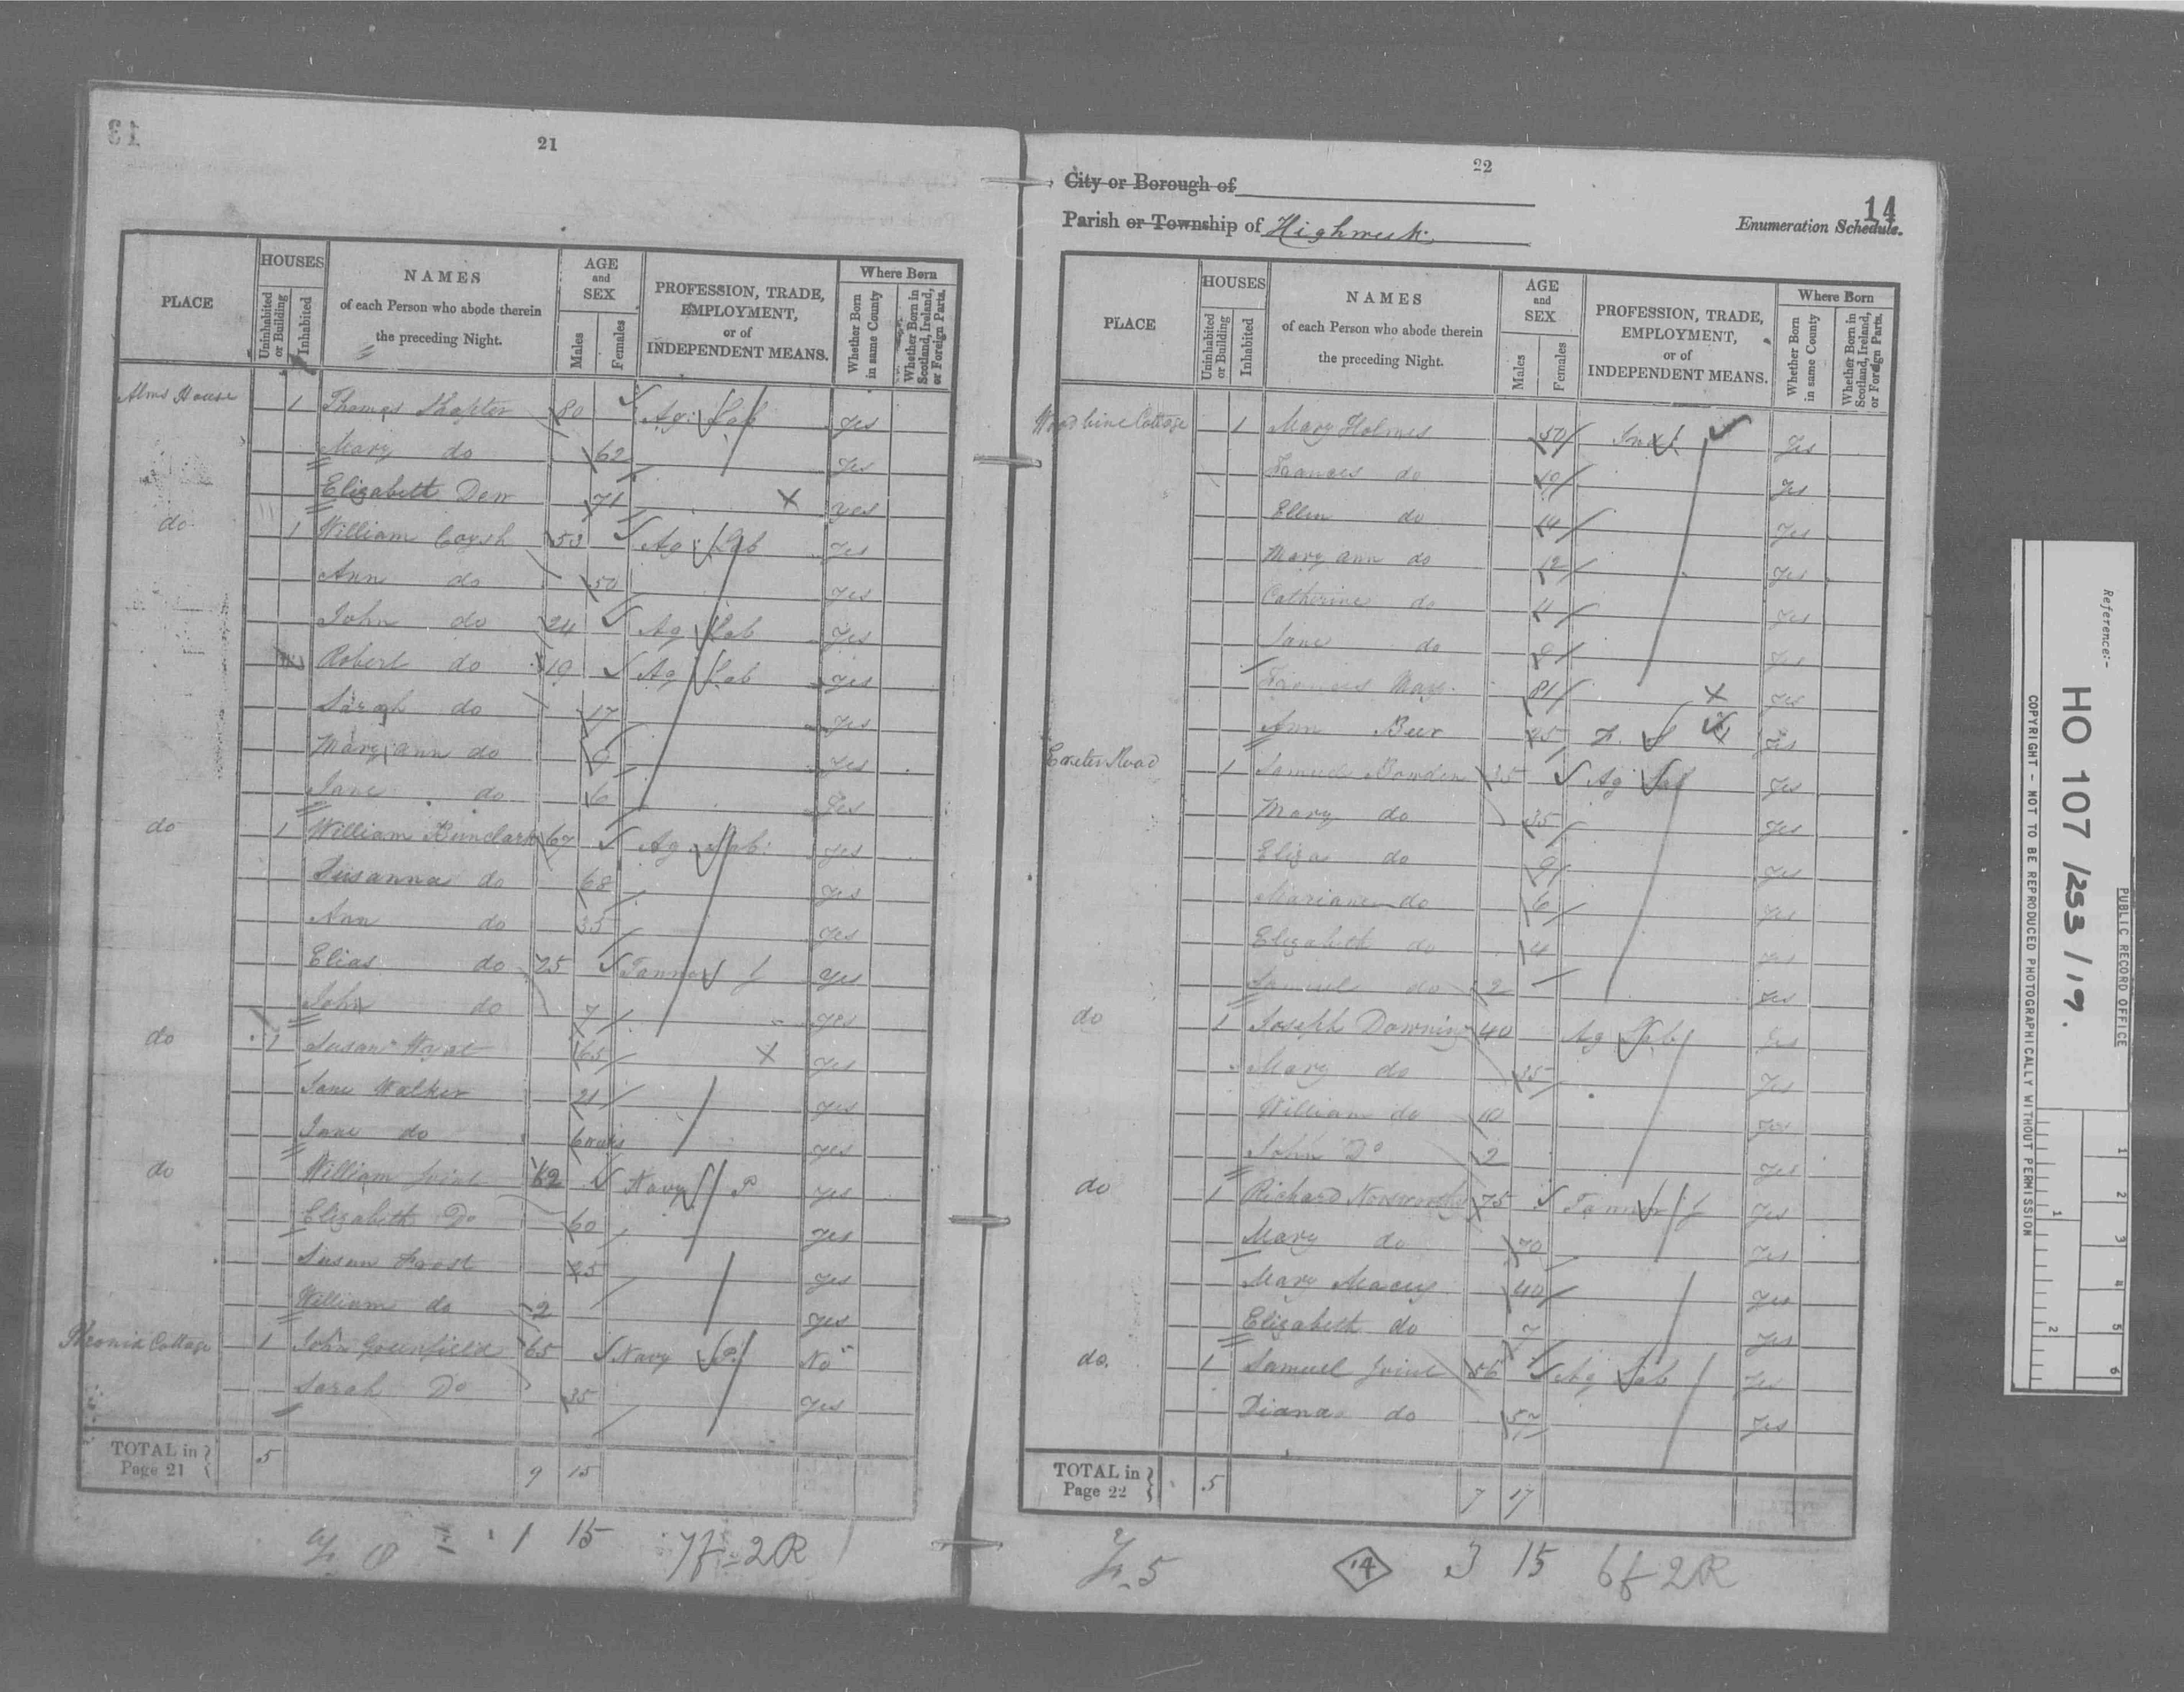 21
HOUSES
AGE
and
SEX
Where Born
PLACE
Uninhabited or Building
Inhabited
NAMES
of each Person who abode therein
the preceding Night.
Males
Females
PROFESSION, TRADE,
EMPLOYMENT,
or of
INDEPENDENT MEANS.
Whether Born in same County
Whether Born in Scotland, Ireland, or Foreign Parts.
Alms House 1 Thomas Shapter 80 Ag: Lab yes
Mary do 62 yes
Elizabeth 71 yes
do 1 William Coysh 53 Ag: Lab yes
Ann do 50 yes
John do 24 Ag Lab yes
Robert do Ag Lab yes
Sarah do 17 yes
Mary ann do yes
Jane do 6 yes
do 1 William 67 Ag Lab: yes
Susanna do 68 yes
Ann do 35 yes
Elias do 25 Tanner J yes
John do 7 yes
do 1 Susan 65 yes
Jane Walker 21 yes
Jane do yes
do William Joint Navy P yes
Elizabeth Do 60 yes
Susan Frost 25 yes
William do 2 yes
Cottage 1 John Greenfield 65 Navy P. No
Sarah Do 35 yes
TOTAL in
Page 21 5 9 15
1 15 7f-2R
22
City or Borough of
14
Parish or Township of Highweek
Enumeration Schedule.
HOUSES
AGE
and
SEX
Where Born
PLACE
Uninhabited or Building
Inhabited
NAMES
of each Person who abode therein
the preceding Night.
Males
Females
PROFESSION, TRADE,
EMPLOYMENT,
or of
INDEPENDENT MEANS.
Whether Born in same County
Whether Born in Scotland, Ireland, or Foreign Parts.
Woodbine Cottage 1 Mary Holmes 50 Ind yes
Frances do yes
Ellen do 14 yes
Mary ann do 12 yes
Catherine do 11 yes
Jane do yes
Frances 81 yes
Ann Beer 45 yes
Exeter Road 1 Samuel Bowden 35 Ag Lab yes
Mary do 35 yes
Eliza do 9 yes
Mariane do 6 yes
Elizabeth do 4 yes
Samuel do 2 yes
do 1 Joseph Downing 40 Ag Lab yes
Mary do 35 yes
William do 10 yes
John Do 2 yes
do 1 Richard Norsworthy 75 Tanner J yes
Mary do 70 yes
Mary Macey 40 yes
Elizabeth do 7 yes
do. 1 Samuel Joint 56 Ag Lab yes
Diana do 57 yes
TOTAL in
Page 22 5 7 17
14 3 15 6f-2R
Reference:-
PUBLIC RECORD OFFICE
HO 107 / 253 / 19.
COPYRIGHT - NOT TO BE REPRODUCED PHOTOGRAPHICALLY WITHOUT PERMISSION
1 2 3 4 5 6
1 2